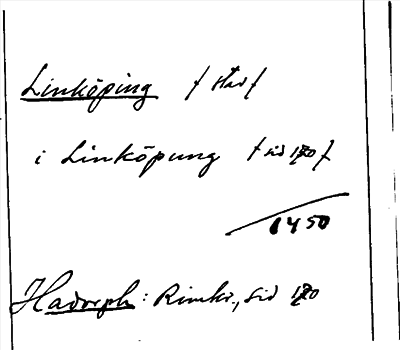 Linköping / stad /
i Linköpung / sid 170 /
1450
Hadorph: Rimkr., sid 170